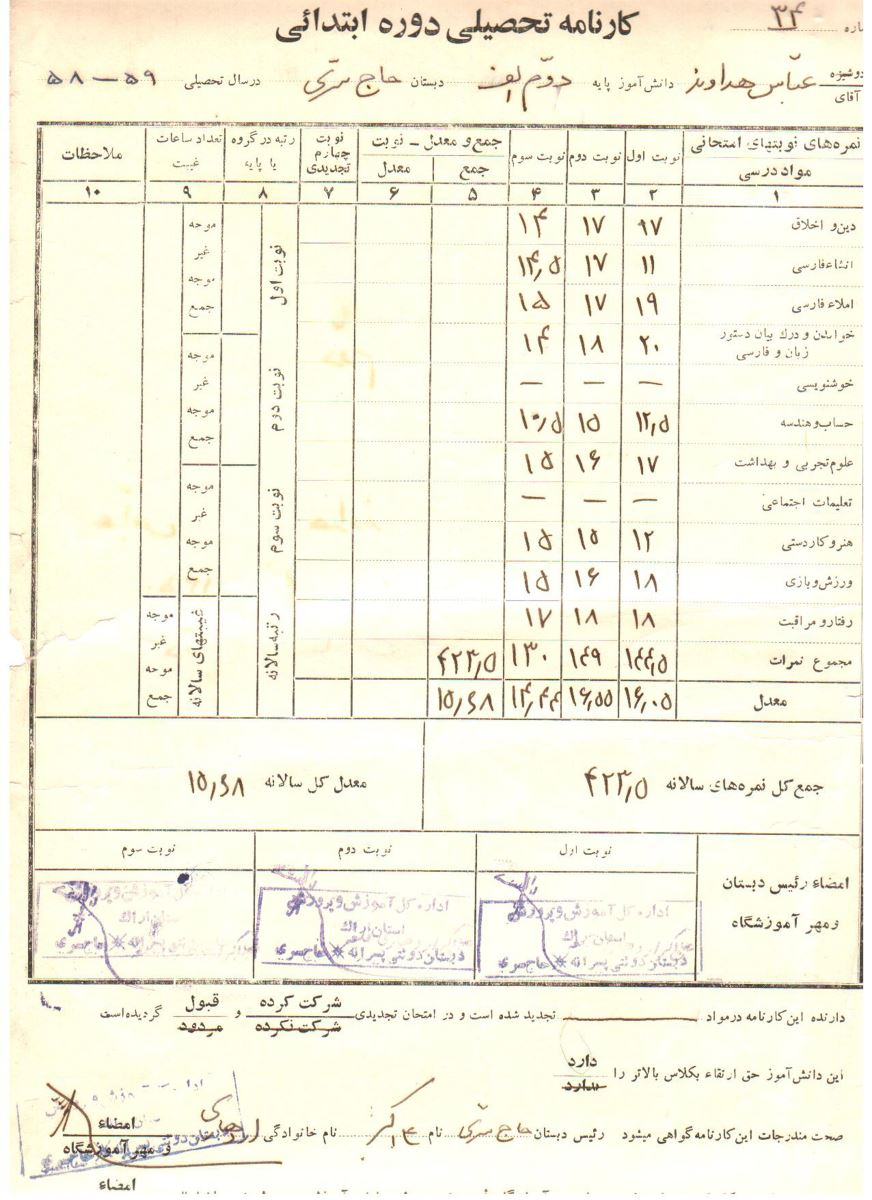 کارنامه تحصیلی دوره ابتدائی
۳۴
دوشیزه
آقای
عباس هداوند دانش‌آموز پایه دوم الف دبستان حاج سرّی در سال تحصیلی ۵۹ – ۵۸
نمره‌های نوبتهای امتحانی
مواد درسی نوبت اول نوبت دوم نوبت سوم جمع و معدل - نوبت جمع معدل نوبت چهارم تجدیدی رتبه در گروه یا پایه تعداد ساعات غیبت ملاحظات
۱ ۲ ۳ ۴ ۵ ۶ ۷ ۸ ۹ ۱۰
دین و اخلاق ۱۷ ۱۴
انشاء فارسی ۱۱ ۱۷ ۱۴٫۵
املاء فارسی ۱۹ ۱۷ ۱۵
خواندن و درك بیان دستور
زبان و فارسی ۲۰ ۱۸ ۱۴
خوشنویسی — — —
حساب و هندسه ۱۲٫۵ ۱۵ ۱۰٫۵
علوم تجربی و بهداشت ۱۷ ۱۶ ۱۵
تعلیمات اجتماعی — — —
هنر و کاردستی ۱۲ ۱۵ ۱۵
ورزش و بازی ۱۸ ۱۶ ۱۵
رفتار و مراقبت ۱۸ ۱۸ ۱۷
مجموع نمرات ۱۴۴٫۵ ۱۴۹ ۱۳۰ ۴۲۳٫۵
معدل ۱۶٫۰۵ ۱۶٫۵۵ ۱۴٫۴۴ ۱۵٫۶۸
نوبت اول
موجه
غیر
موجه
جمع
نوبت دوم
موجه
غیر
موجه
جمع
نوبت سوم
موجه
غیر
موجه
جمع
رتبه سالانه
غیبتهای سالانه
موجه
غیر
موجه
جمع
جمع کل نمره‌های سالانه ۴۲۳٫۵ معدل کل سالانه ۱۵٫۶۸
امضاء رئیس دبستان
و مهر آموزشگاه
نوبت اول
اداره کل آموزش و پرورش
استان
دبستان دولتی پسرانه * حاج سری
نوبت دوم
اداره کل آموزش و پرورش
استان
دبستان دولتی پسرانه * حاج سری
نوبت سوم
دارنده این کارنامه در مواد تجدید شده است و در امتحان تجدیدی شرکت کرده شرکت نکرده و قبول مردود گردیده است
این دانش‌آموز حق ارتقاء بکلاس بالاتر را دارد ندارد
صحت مندرجات این کارنامه گواهی میشود رئیس دبستان حاج سرّی نام نام خانوادگی امضاء و مهر آموزشگاه
امضاء